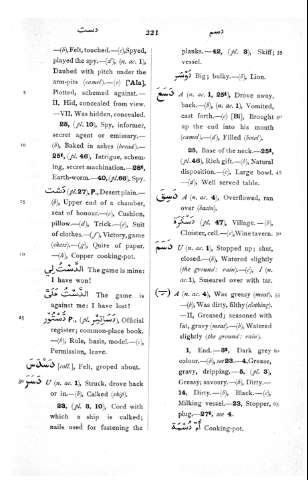 دست
221
دسم
—(b), Felt, touched.—(c), Spyed,
played the spy.—(d), (n. ac. 1),
Daubed with pitch under the
arm-pits (camel).—(e) [‘Ala],
Plotted, schemed against.—
II, Hid, concealed from view.
—VII, Was hidden, concealed.
25, (pl. 10), Spy, informer,
secret agent or emissary.—
(b), Baked in ashes (bread).—
(pl. 46), Intrigue, scheming,
secret machination.—
Earth-worm.—40, (pl. 66), Spy.
دست (pl. 27), P., Desert plain.—
(b), Upper end of a chamber,
seat of honour.—(c), Cushion,
pillow.—(d), Trick.—(e), Suit
of clothes.—(f), Victory, game
(chess).—(g), Quire of paper.
—(h), Copper cooking-pot.
الدست لي The game is mine:
I have won!
الدست علي The game is
against me: I have lost!
دستور P., (pl. دساتير), Official
register; common-place book.
—(b), Rule, basis, model.—(c),
Permission, leave.
[coll.], Felt, groped about.
دسر U (n. ac. 1), Struck, drove back
or in.—(b), Calked (ship).
23, (pl. 3, 10), Cord with
which a ship is calked;
nails used for fastening the
planks.—42, (pl. 3), Skiff;
vessel.
دوسر Big; bulky.—(b), Lion.
دسع A (n. ac. 1, 25), Drove away,
back.—(b), (n. ac. 1), Vomited,
cast forth.—(c) [Bi], Brought
up the cud into his month
(camel).—(d), Filled (bowl).
25, Base of the neck.—
(pl. 46), Rich gift.—(b), Natural
disposition.—(c), Large bowl.
—(d), Well served table.
دسق A (n. ac. 4), Overflowed, ran
over (basin).
دسكرة (pl. 47), Village.—(b),
Cloister, cell.—(c), Wine tavern.
دسم U (n. ac. 1), Stopped up; shut,
closed.—(b), Watered slightly
(the ground: rain).—(c), I (n.
ac. 1), Smeared over with tar.
A (n. ac. 4), Was greasy (meat).
—(b), Was dirty, filthy (clothing).
—II, Greased; seasoned with
fat, gravy (meat).—(b), Watered
slightly (the ground: rain).
1, End.— Dark grey
colour.—(b), see 23.—4, Grease,
gravy, dripping.—5, (pl. 3),
Greasy; savoury.—(b), Dirty.—
14, Dirty.—(b), Black.—(c),
Milking vessel.—23, Stopper,
plug.— see 4.
Cooking-pot.